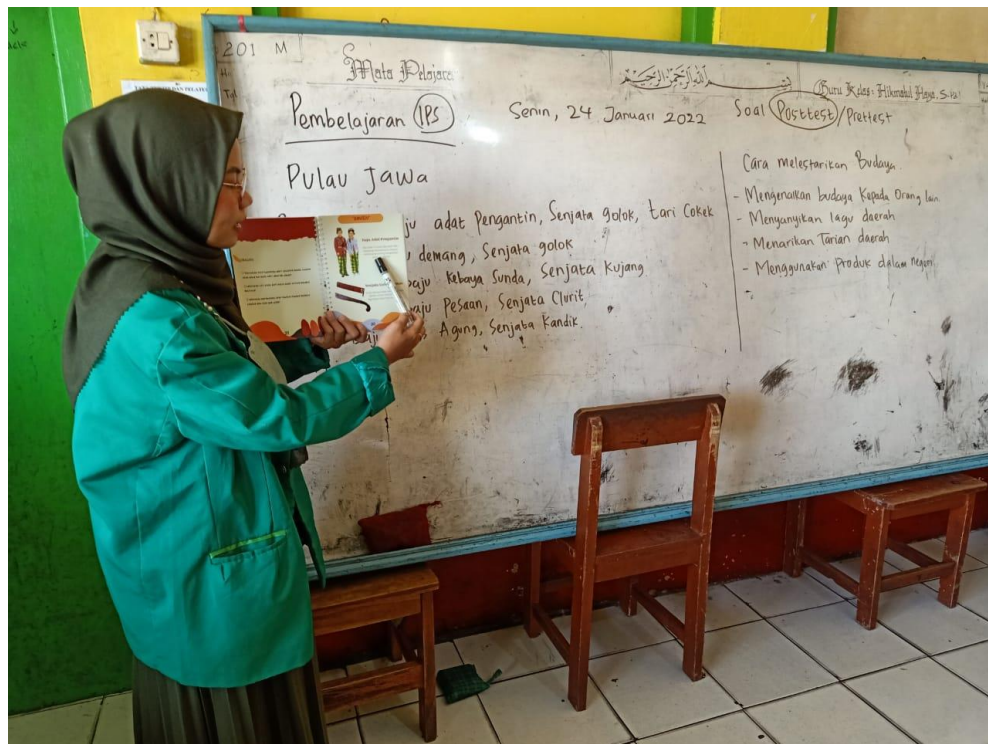 201 M
Mata Pelajara
بسم الله الرحمن الرحيم
Guru Kelas: Hikmatul
Pembelajaran IPS
Senin, 24 Januari 2022
Soal Posttest/Prettest
Pulau Jawa
ju adat Pengantin, Senjata golok, tari Cokek
demang, Senjata golok
baju Kebaya Sunda, Senjata Kujang
aju Pesaan, Senjata Clurit
Agung, Senjata Kandik
Cara melestarikan Budaya
- Mengenalkan budaya Kepada Orang lain
- Menyanyikan lagu daerah
- Menarikan Tarian daerah
- Menggunakan Produk dalam negeri